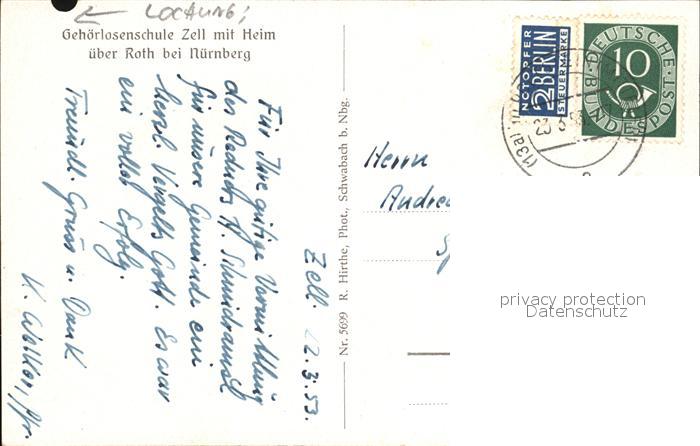 LOCHUNG!
Gehörlosenschule Zell mit Heim
über Roth bei Nürnberg
Zell. 22.3.53.
Für Ihre gütige Vermittlung
des Redners H. Schmidramsl
für unsere Gemeinde ein
herzl. Vergelts Gott. Es war
ein voller Erfolg.
Freundl. Gruss u. Dank
K. Pfr.
Nr. 5699 R. Hirthe, Phot., Schwabach b. Nbg.
NOTOPFER
2 BERLIN
STEUERMARKE
DEUTSCHE
10
BUNDESPOST
(13a)
23.3.53
Herrn
privacy protection
Datenschutz